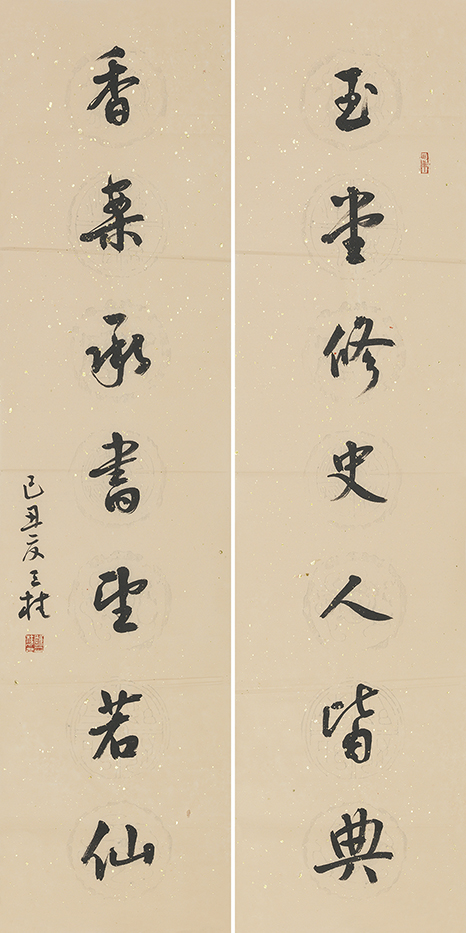 玉堂修史人皆典
香案承書望若仙
己丑夏